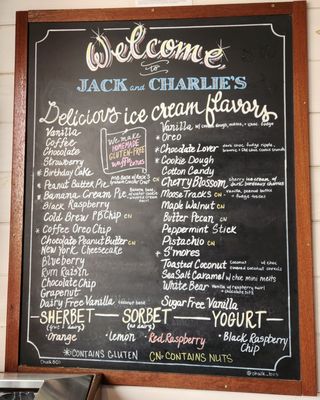 Welcome
to
JACK and CHARLIE'S
Delicious ice cream flavors
Vanilla
Coffee
Chocolate
Strawberry
* Birthday Cake
* Peanut Butter Pie
* Banana Cream Pie
Black Raspberry
Cold Brew PB Chip CN
* Coffee Oreo Chip
Chocolate Peanut Butter CN
* New York Cheesecake
Blueberry
Rum Raisin
Chocolate Chip
Grapenut
Dairy Free Vanilla coconut base
We make
HOMEMADE
GLUTEN-FREE
waffle
cones
Vanilla
* Oreo
* Chocolate Lover
* Cookie Dough
Cotton Candy
Cherry Blossom
Moose Tracks CN
Maple Walnut CN
Butter Pecan CN
Peppermint Stick
Pistachio CN
* S'mores
Toasted Coconut
Sea Salt Caramel w/ choc mini melts
White Bear
Sugar Free Vanilla
SHERBET
Orange
SORBET
(no dairy)
• Lemon • Red Raspberry
YOGURT
• Black Raspberry
Chip
* CONTAINS GLUTEN CN = CONTAINS NUTS